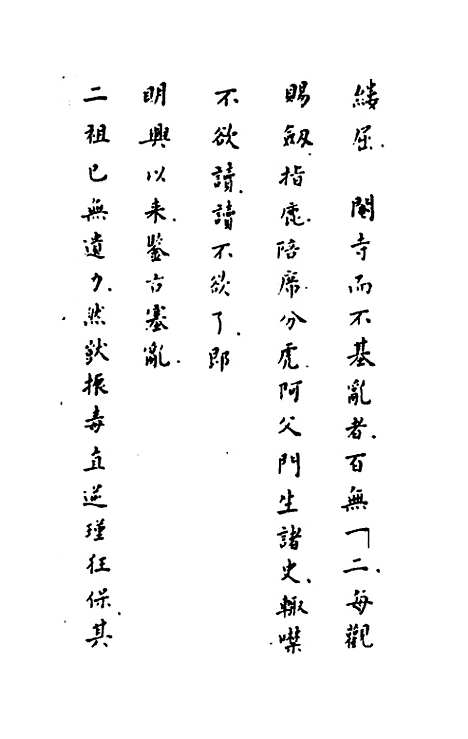 縷屈 閹寺而不基亂者百無一二每觀
賜劔指鹿陪席分虎阿父門生諸史輙噤
不欲讀讀不欲了郎
明興以来鑒古塞亂
二祖已無遺力然猷振毒直逆瑾狂保其